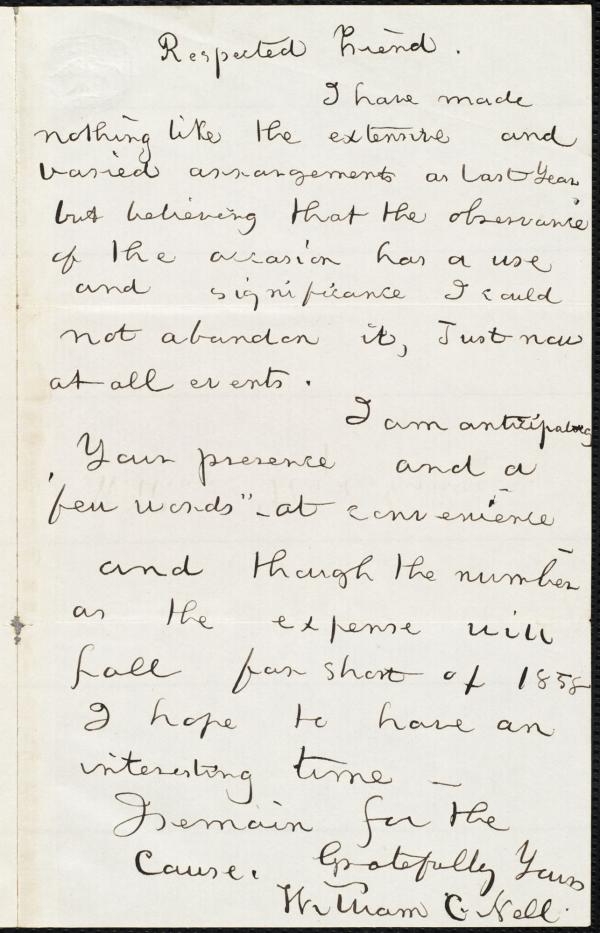 Respected Friend.
I have made
nothing like the extensive and
varied arrangements as last Year
but believing that the observance
of the occasion has a use
and significance I could
not abandon it, Just now
at all events.
I am anticipating
Your presence and a
"few words" - at convenience
and though the number
as the expense will
fall far short of 1858
I hope to have an
interesting time —
I remain for the
Cause. Gratefully Yours
William C. Nell.